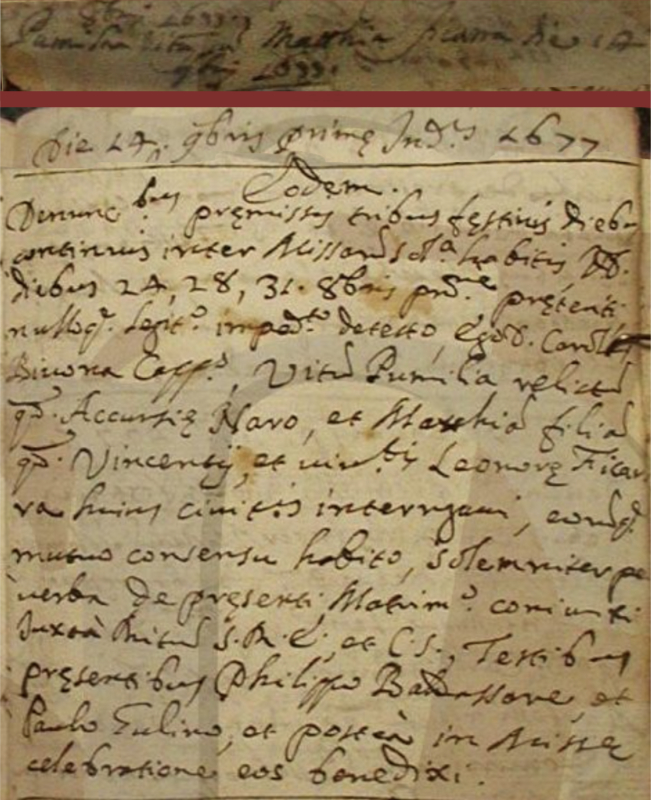 9bris 1677
Pumilia Vitus cum Matthia Ficarra die 14
9bris 1677
Die 14. 9bris primę Ind.s 1677
Eodem.
Denunc.bus pręmissis tribus festivis diebus
continuis inter Missarũ sol.a habitis V3.
diebus 24, 28, 31. 8bris pro.me pręteriti
nulloq. legit.o imped.to detecto, Ego D. Carolus
Bivona Capp.s, Vitũ Pumilia relictũ
qd. Accursię Navo, et Matthiã filiã
qd. Vincentij, et viv.tis Leonorę Ficar
ra huius civit.is interrogavi, eorũq.
mutuo consensu habito, solemniter per
verba de pręsenti, Matrim.o coniunxi
Juxtà Ritũ S. R. E., et C. S., Testibus
pręsentibus Philippo Baldassare, et
Paulo Gulino, et posteà in Missę
celebratione eos benedixi.